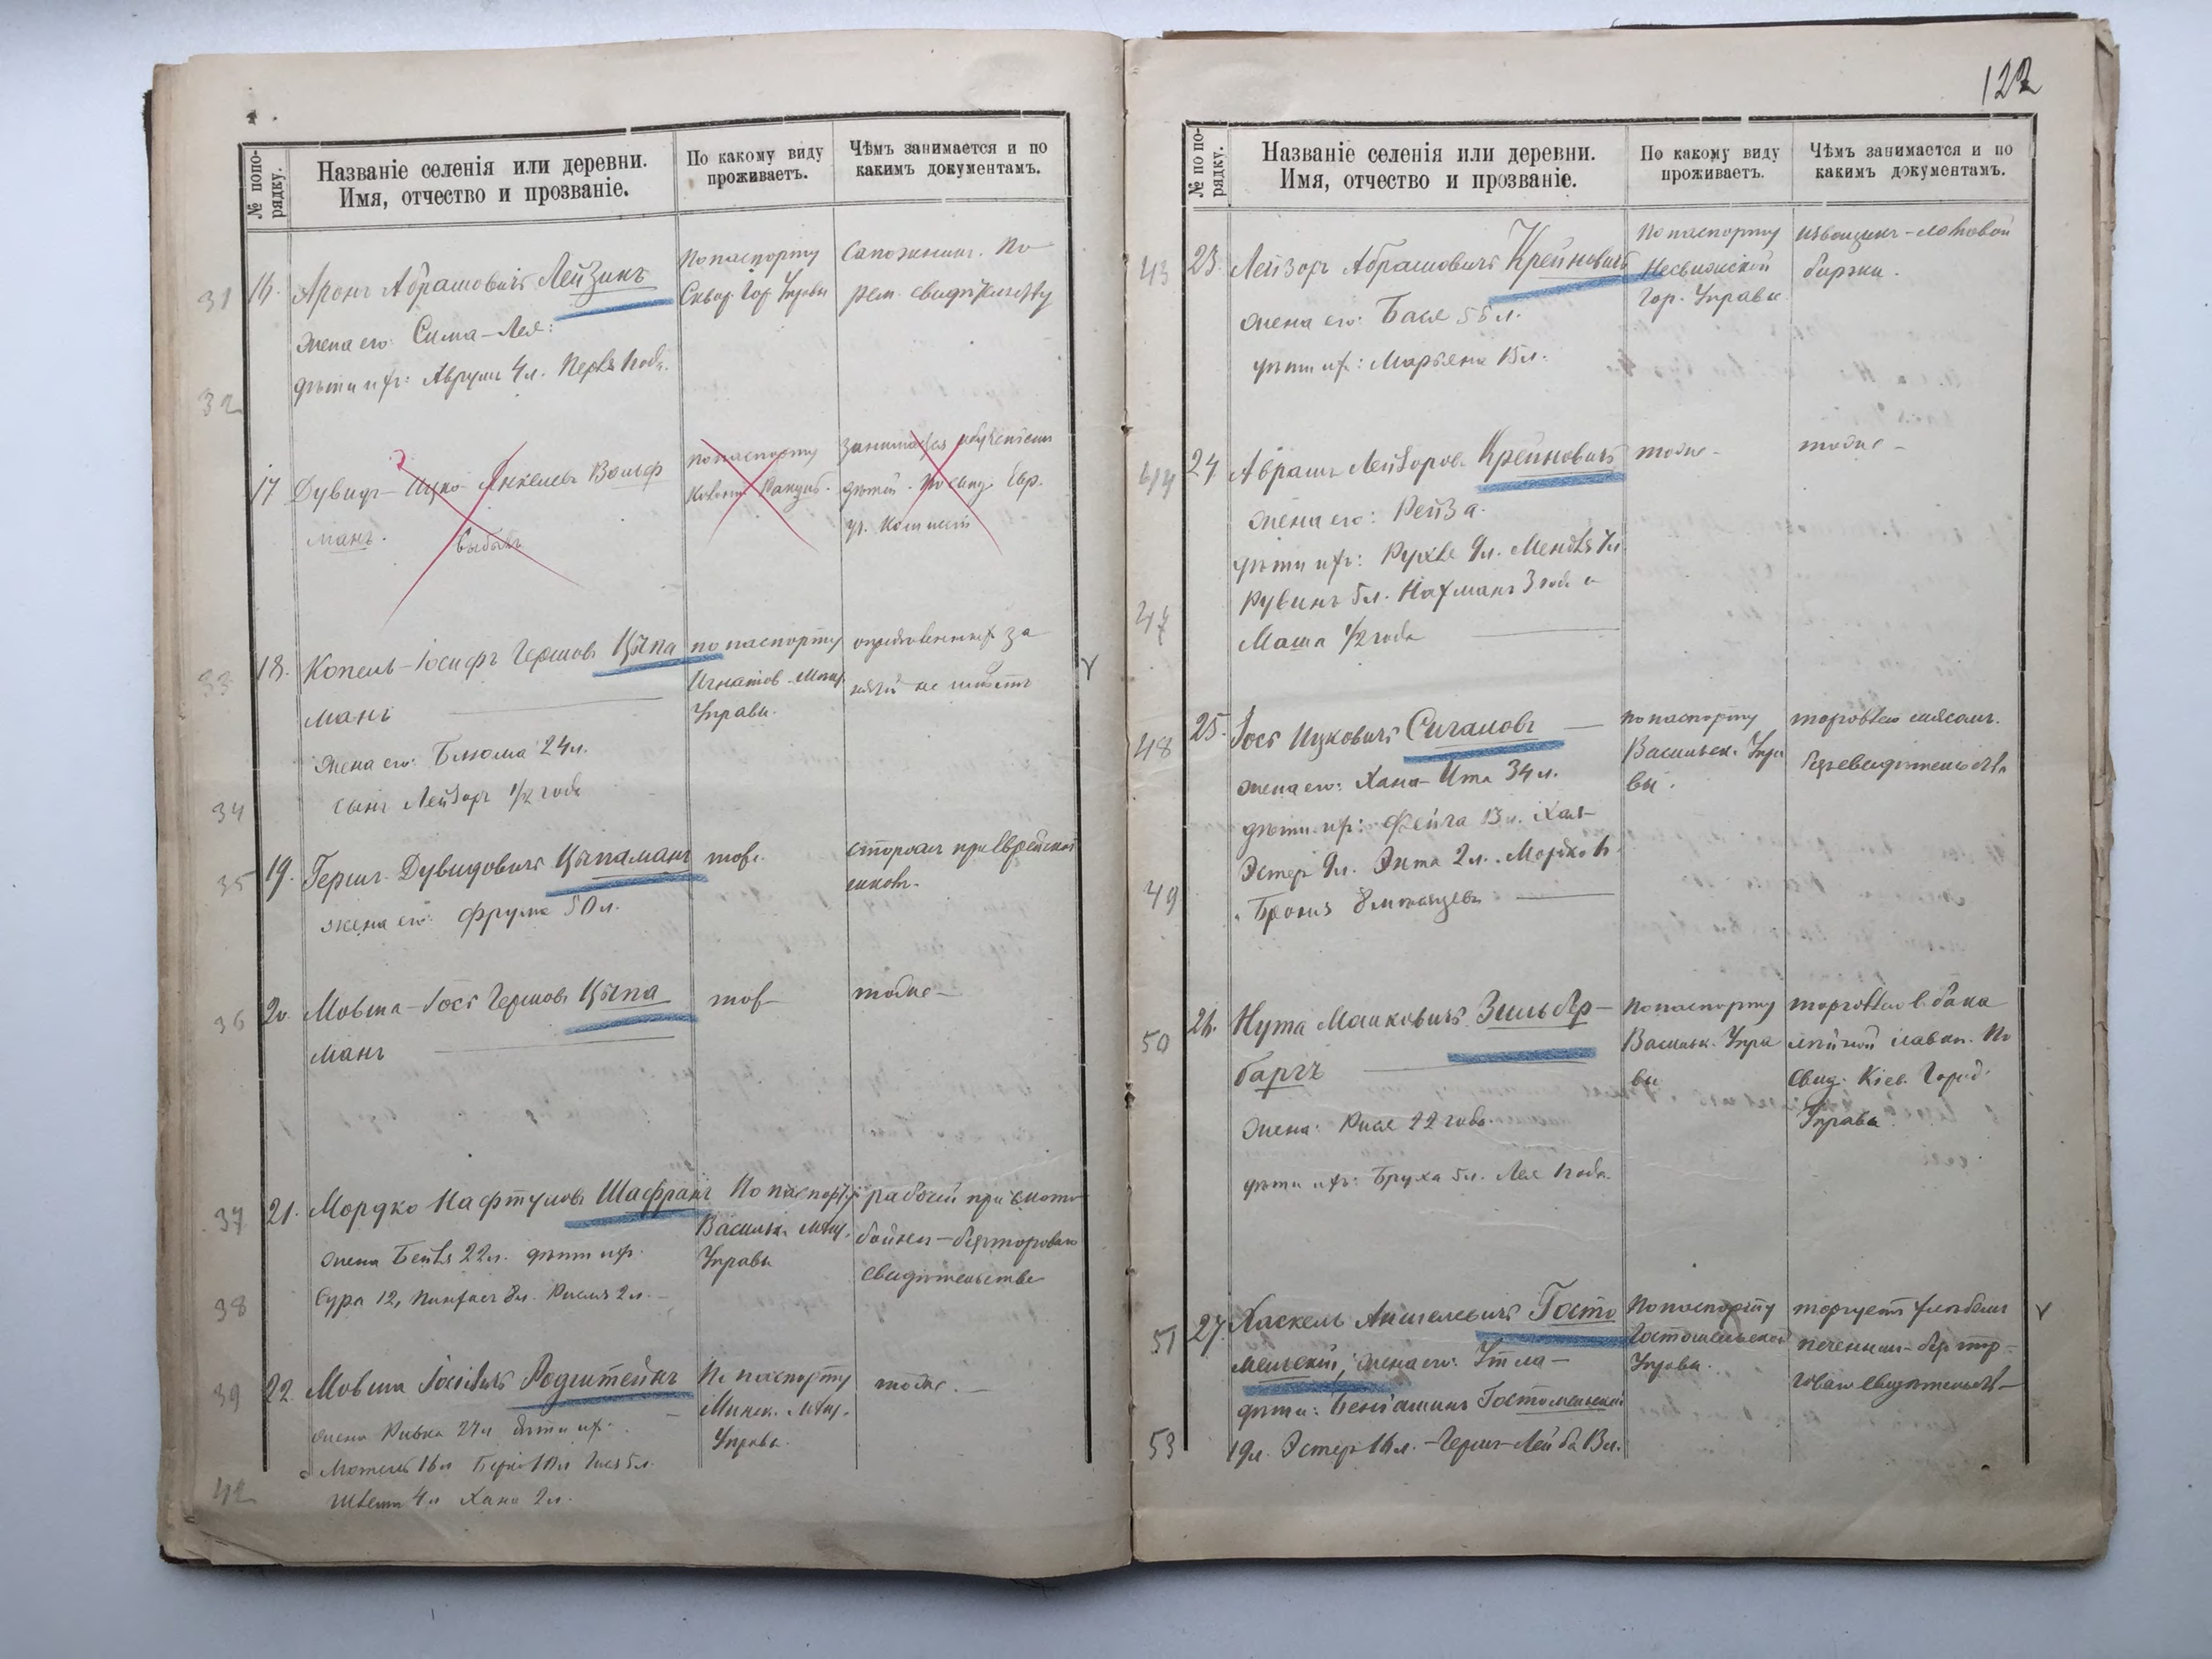 № попо-
рядку.
Названіе селенія или деревни.
Имя, отчество и прозваніе.
По какому виду
проживаетъ.
Чѣмъ занимается и по
какимъ документамъ.
31
16. Аронъ Абрамовичъ Лейзинъ
По паспорту
Сквар. Гор. Управы
Сапожникъ. По
рем. свидѣтельству
жена его: Сима-Лея:
дѣти ихъ: Аврумъ 4 л. 1 годъ.
32
17 Дувидъ-Ицко Янкелевъ Вольф
манъ.
выбылъ
по паспорту
занимается обученіемъ
дѣтей. По свид. Евр.
33
18. Копель-Іосифъ Гершовъ Цыпа
манъ
по паспорту
Игнатов. Мѣщ.
Управы.
опредѣленныхъ за
нятій не имѣетъ
жена его: Блюма 24 л.
сынъ Лейзоръ 1/2 года
34
35
19. Гершъ Дувидовичъ Цыпаманъ
тоже
сторожъ при Еврейской
школѣ.
жена его: Фрума 50 л.
36
20. Мовша-Іось Гершовъ Цыпа
манъ
тож
тоже
37
21. Мордко Нафтуловъ Шафранъ
По паспорту
Васильк. Мѣщ.
Управы
рабочій при ското
бойни-безторгового
свидѣтельства
жена Бейля 22 л. дѣти ихъ.
Сура 12, Пинхасъ 8 л. 2 л.
38
39
22. Мовша Родштейнъ
По паспорту
Минск. Мѣщ.
Управы.
тоже.
жена Ривка 27 л дѣти ихъ:
Мотель 16 л 5 л.
4 л Хана 2 л.
42
122
№ по по-
рядку.
Названіе селенія или деревни.
Имя, отчество и прозваніе.
По какому виду
проживаетъ.
Чѣмъ занимается и по
какимъ документамъ.
43
23. Лейзоръ Абрамовичъ Крейновичъ
По паспорту
Несвижской
Гор. Управы
извозчикъ-ломовой
биржи.
жена его: Бася 55 л.
дѣти их: Марьяна 15 л.
44
24 Аврамъ Лейзоров. Крейновичъ
тоже
тоже
жена его: Рейза.
дѣти ихъ: Рухля 9 л. Мендель 7 л
Рувинъ 5 л. Нахманъ 3 года и
Маша 1/2 года
47
48
25. Іось Ицковичъ Сигаловъ
по паспорту
Васильк. Упра
вы.
торговля мясомъ.
безъ свидѣтельства
жена его: Хана-Ита 34 л.
дѣти их: Фейга 13 л. Хая-
Эстер 9 л. Энта 2 л. Мордко 6
49
26. Нута Манковичъ Зильбер-
баргъ
По паспорту
Васильк. Упра
вы
торговля в бака
лейной лавки. По
свид. Кіев. Город.
Управы
50
жена: Рися 22 года.
дѣти ихъ: Бруха 5 л. Лея 1 года.
51
27. Хаскель Аншелевичъ Госто
мельскій; жена его: Этла-
По паспорту
Гостомельской
Управы.
торгуетъ хлѣбомъ
печенымъ-без тор-
говаго свидѣтельств
дѣти: Веніаминъ Гостомельскій
19 л. Эстеръ 16 л.-Гершъ-Лейба 13 л.
53